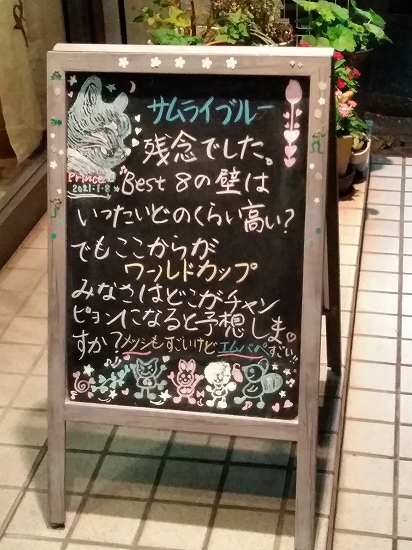 サムライブルー
残念でした。
Prince
2021.1.8
Best 8の壁は
いったいどのくらい高い？
でもここからが
ワールドカップ
みなさはどこがチャン
ピョンになると予想しま
すか？メッシもすごいけどエムバペすごい!!